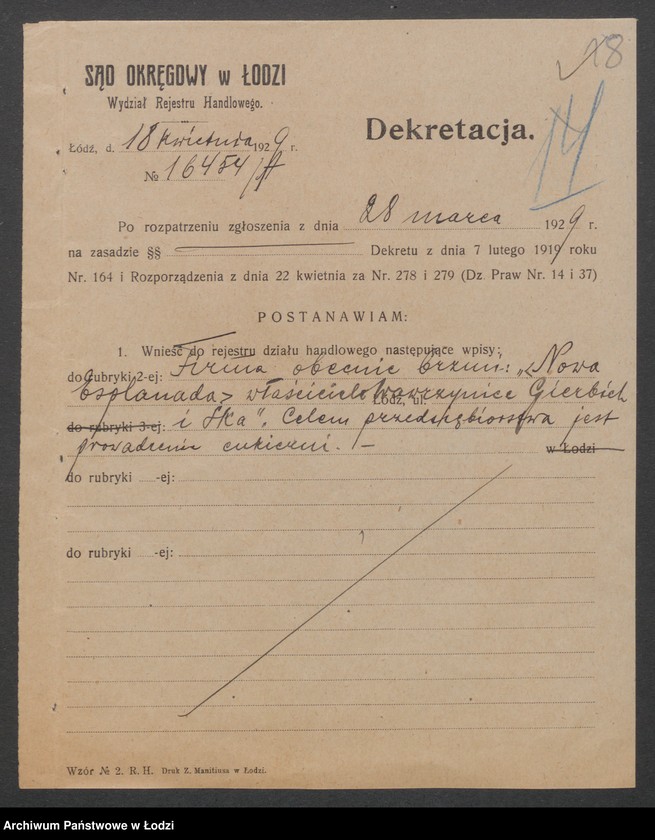 18
SĄD OKRĘGOWY w ŁODZI
Wydział Rejestru Handlowego.
Dekretacja.
14
Łódź, d. 18 kwietnia 1929 r.
№ 16454/
Po rozpatrzeniu zgłoszenia z dnia 28 marca 1929 r.
na zasadzie §§ Dekretu z dnia 7 lutego 1919 roku
Nr. 164 i Rozporządzenia z dnia 22 kwietnia za Nr. 278 i 279 (Dz. Praw Nr. 14 i 37)
POSTANAWIAM:
1. Wnieść do rejestru działu handlowego następujące wpisy:
do rubryki 2-ej: Firma obecnie brzmi: „<Nowa
Esplanada> właściciele Wawrzyniec Gierbich
Łódź, ul.
do rubryki 3-ej: i Ska". Celem przedsiębiorstwa jest
prowadzenie cukierni. —
w Łodzi
do rubryki -ej:
do rubryki -ej:
Wzór № 2. R. H. Druk Z. Manitiusa w Łodzi.
Archiwum Państwowe w Łodzi